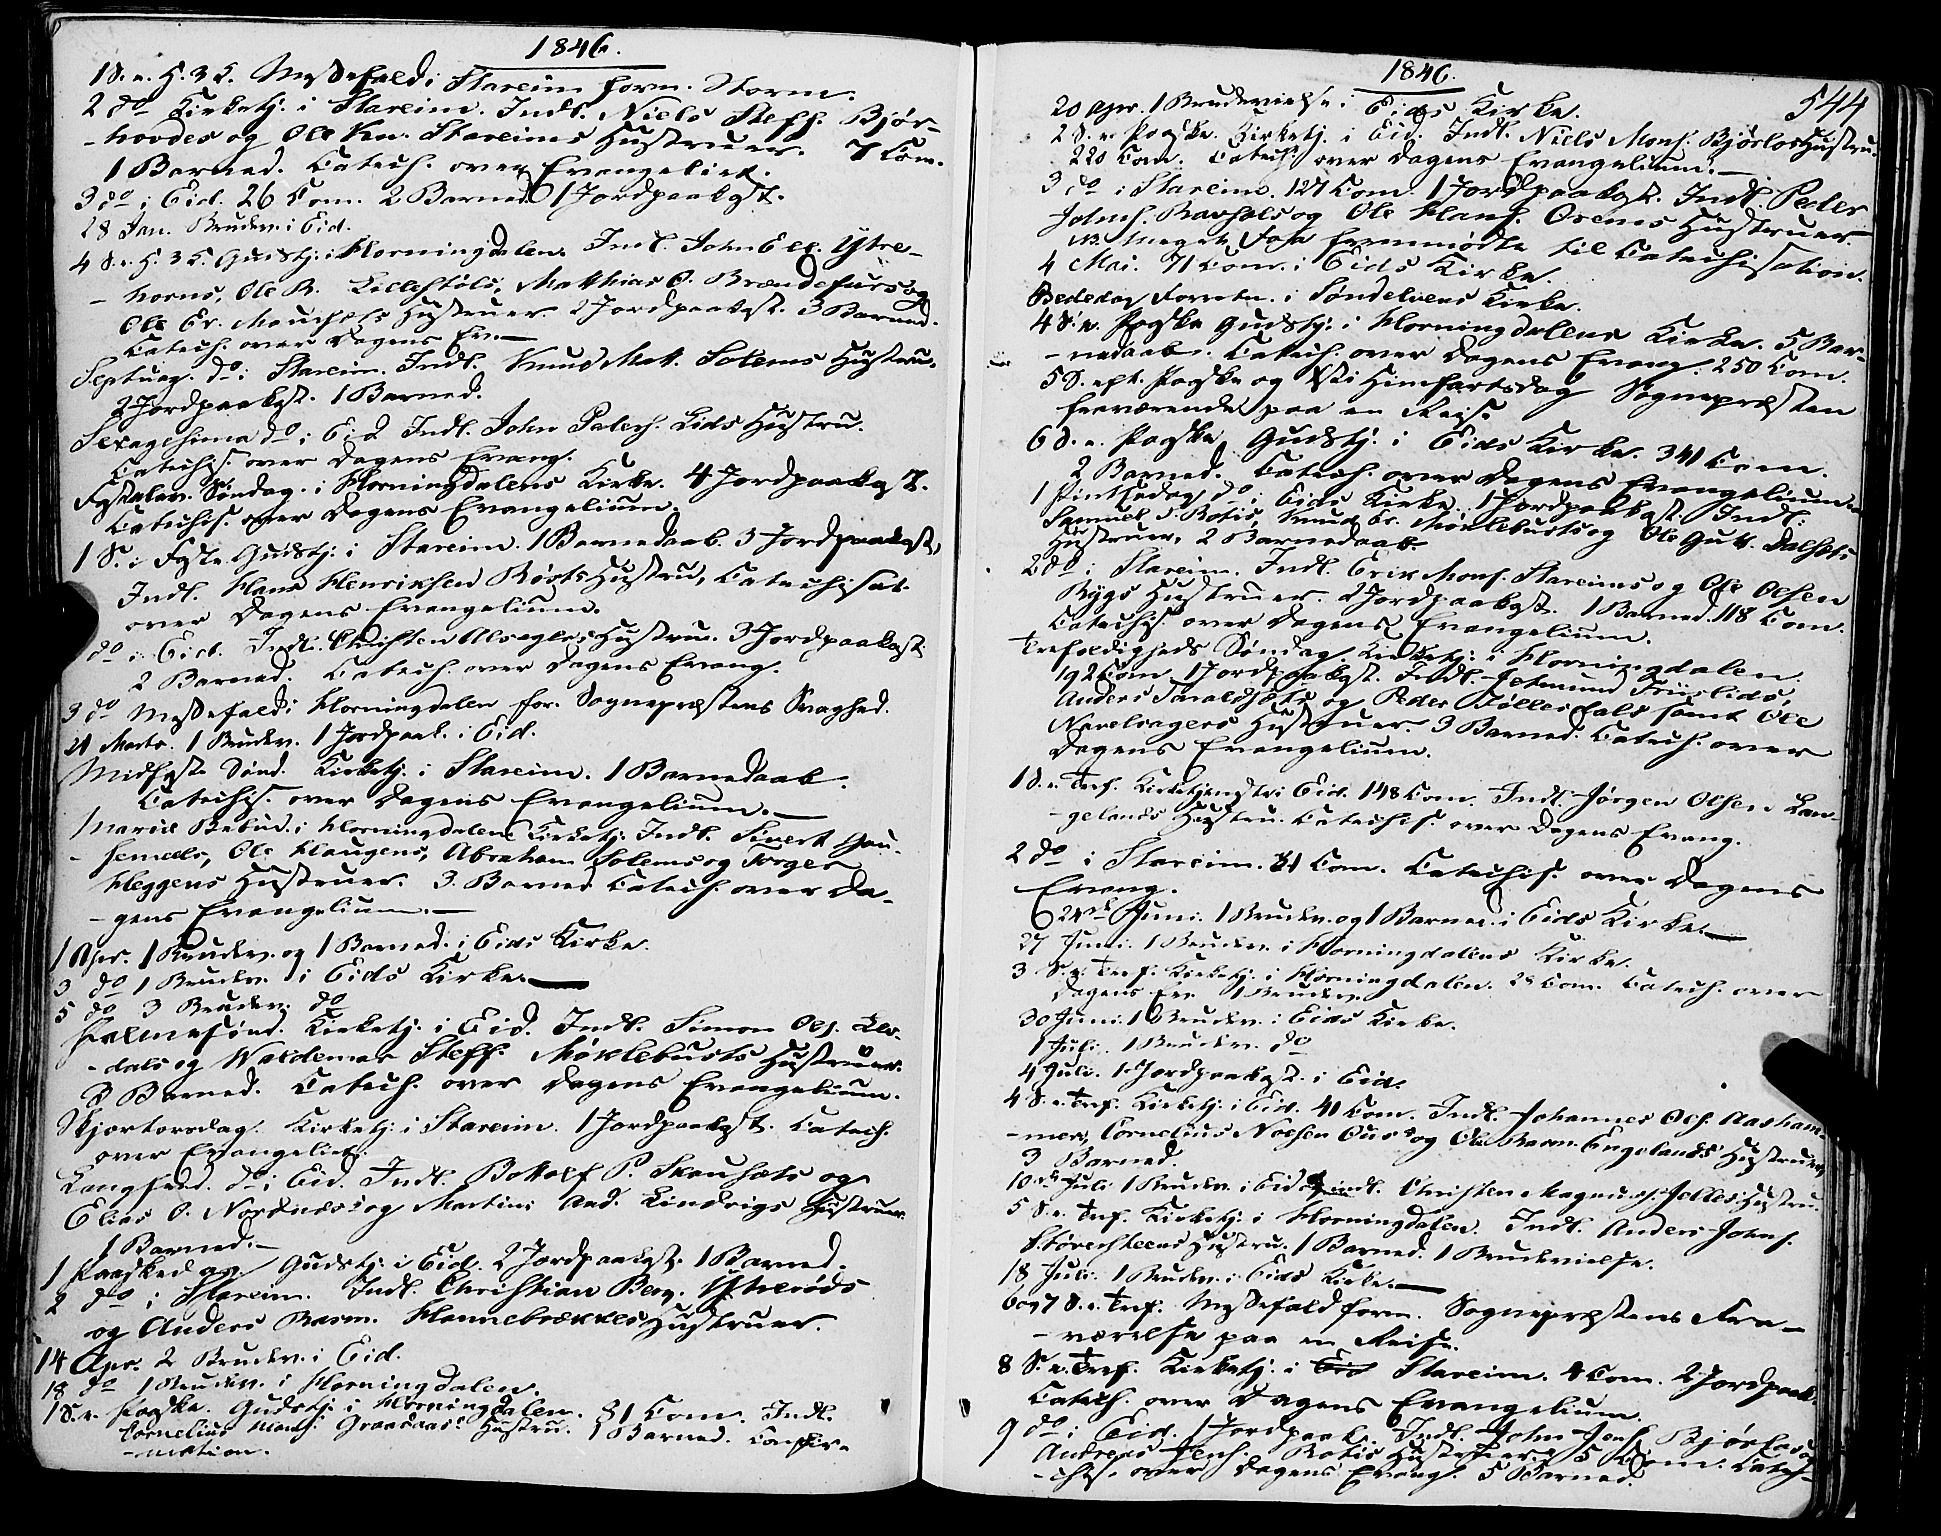 1846.
1 S. e. H. 3 K. Messefald i Stareim form. Storm.
2 do Kirketj. i Stareim. Indl. Niels Steff. Bjør-
-hovdes og Ole Kn. Stareims Hustruer. 7 Com.
1 Barned. Catech. over Evangeliet.
3 do i Eid. 26 Com. 2 Barned. 1 Jordpaakast.
28 Jan. Brudev. i Eid.
4 S. e. H. 3 K. Gudstj. i Horningdalen. Indl. John Ell. Ytre-
-horns, Ole R. Lillestøls, Matthias O. Brændefurs og
Ole Er. Hustruer. 2 Jordpaakast. 3 Barned.
Catech. over Dagens Ev.
Septuag. do i Stareim. Indl. Knud Matt. Solems Hustru.
2 Jordpaakast. 1 Barned.
Sexagesima do i Eid Indl. John Palesh. Lids Hustru.
Catechis. over Dagens Evang.
Fastelav. Søndag. i Horningdalens Kirke. 4 Jordpaakast.
Catechis. over Dagens Evangelium.
1 S. i Faste Gudstj. i Stareim. 1 Barnedaab. 3 Jordpaakast,
Indl. Hans Henriksen Røots Hustru, Catechisat.
over Dagens Evangelium.
do i Eid. Indl. Christen Hustru. 3 Jordpaakast.
2 Barned. Catech. over Dagens Evang.
3 do Messefald i Horningdalen for. Sognepræstens Svaghed.
21 Marts. 1 Brudev. 1 Jordpaak. i Eid.
Midfaste Sønd. Kirketj. i Stareim. 1 Barnedaab.
Catechis. over Dagens Evangelium.
Mariæ Bebud. i Horningdalens Kirketj. Indl. Sivert Gau-
-semels, Ole Haugens, Abraham Solems og Torger
Heggens Hustruer. 3 Barned. Catech. over Da-
-gens Evangelium.
1 Apr. 1 Brudev. og 1 Barned. i Eids Kirke.
3 do 1 Brudev. i Eids Kirke.
5 do 3 Brudev. do
Palmesønd. Kirketj. i Eid. Indl. Simon Ols.
-dals og Waldemar Steff. Myklebusts Hustruer.
3 Barned. Catech. over Dagens Evangelium.
Skjærtorsdag. Kirketj. i Stareim. 1 Jordpaakast. Catech.
over Evangeliet.
Langfred. do i Eid. Indl. Bottolf P. Skausæts og
Elias O. Nordnæs og Martinus And. Lindvigs Hustruer.
1 Barned.
1 Paaskedag. Gudstj. i Eid. 2 Jordpaakast. 1 Barned.
2 do i Stareim. Indl. Christian Ytrerøds
og Anders Rasm. Hustruer.
14 Apr. 2 Brudev. i Eid.
18 do 1 Brudev. i Horningdalen.
1 S. e. Paaske. Gudstj. i Horningdalen. 31 Com. Indl.
Cornelius Mons. Graadaas Hustru. 1 Barned. Confir-
-mation.
544
1846.
20 Apr. 1 Brudevielse i Eids Kirke.
2 S. e. Paaske. Kirketj. i Eid. Indl. Niels Mons. Bjørlos Hustru.
220 Com. Catech. over Dagens Evangelium.
3 do i Stareim. 127 Com. 1 Jordpaakast. Indl. Peder
Johns. og Ole Hans. Osens Hustruer.
NB. Meget Faa fremmødte til Catechisation.
4 Mai. 71 Com. i Eids Kirke.
Bededag Forrettn. i Søndelvens Kirke.
4 S. e. Paaske Gudstj. i Horningdalens Kirke. 5 Bar-
-nedaab. Catech. over Dagens Evang. 250 Com.
5 S. ept. Paaske og Xsti Himfartsdag Sognepræsten
fraværende paa en Reise
6 S. e. Paaske Gudstj. i Eids Kirke. 341 Com.
2 Barned. Catech. over Dagens Evangelium
1 Pintsedag do i Eids Kirke. 1 Jordpaakast. Indl.
Samuel J. Rotis, Knud Er. Myklebusts og Ole Gutt. Dalsæts
Hustruer, 2 Barnedaab.
2 do i Stareim. Indl. Erik Mons. Stareims og Ole Olsen
Rygs Hustruer. 2 Jordpaakast. 1 Barned. 118 Com.
Catechis. over Dagens Evangelium.
Trefoldigheds Søndag. Kirketj. i Horningdalen.
192 Com. 1 Jordpaakast. Indl. Jetmund
Anders og Peder samt Ole
Navelsagers Hustruer. 3 Barned. Catech. over
Dagens Evangelium.
1 S. e. Tref. Kirketjeneste i Eid. 148 Com. Indl. Jørgen Olsen Lan-
-gelands Hustru. Catechis. over Dagens Evang.
2 do i Stareim. 31 Com. Catechis. over Dagens
Evang.
24de Juni. 1 Brudev. og 1 Barned. i Eids Kirke.
27 Juni. 1 Brudev. i Horningdalens Kirke.
3 S. e. Tref. Kirketj. i Horningdalen. 28 Com. Catech. over
Dagens Ev. 1 Brudev.
30 Juni. 1 Brudev. i Eids Kirke.
1 Juli. 1 Brudev. do
4 Juli. 1 Jordpaakast. i Eid.
4 S. e. Tref. Kirketj. i Eid. 41 Com. Indl. Johannes Ols. Aasham-
-mer, Cornelius og Ole Rasm. Engelands Hustruer,
3 Barned.
10de Juli 1 Brudev. i Eid Indl. Christen Hustru.
5 S. e. Tref. Kirketj. i Horningdalen. Indl. Anders Johns.
Størestteens Hustru. 1 Barned. 1 Brudevielse.
18 Juli. 1 Brudev. i Eids Kirke.
6 og 7 S. e. Tref. Messefald form. Sognepræstens Fra-
-værelse paa en Reise.
8 S. e. Tref. Kirketj. i Eid Stareim. 4 Com. 2 Jordpaak.
Catech. over Dagens Evangelium.
9 do i Eid. 1 Jordpaak. Indl. John Jons. Bjørlos og
Andreas Jens. Rotis Hustruer. 5 Com. Catech-
-chis. over Dagens Evang. 5 Barned.